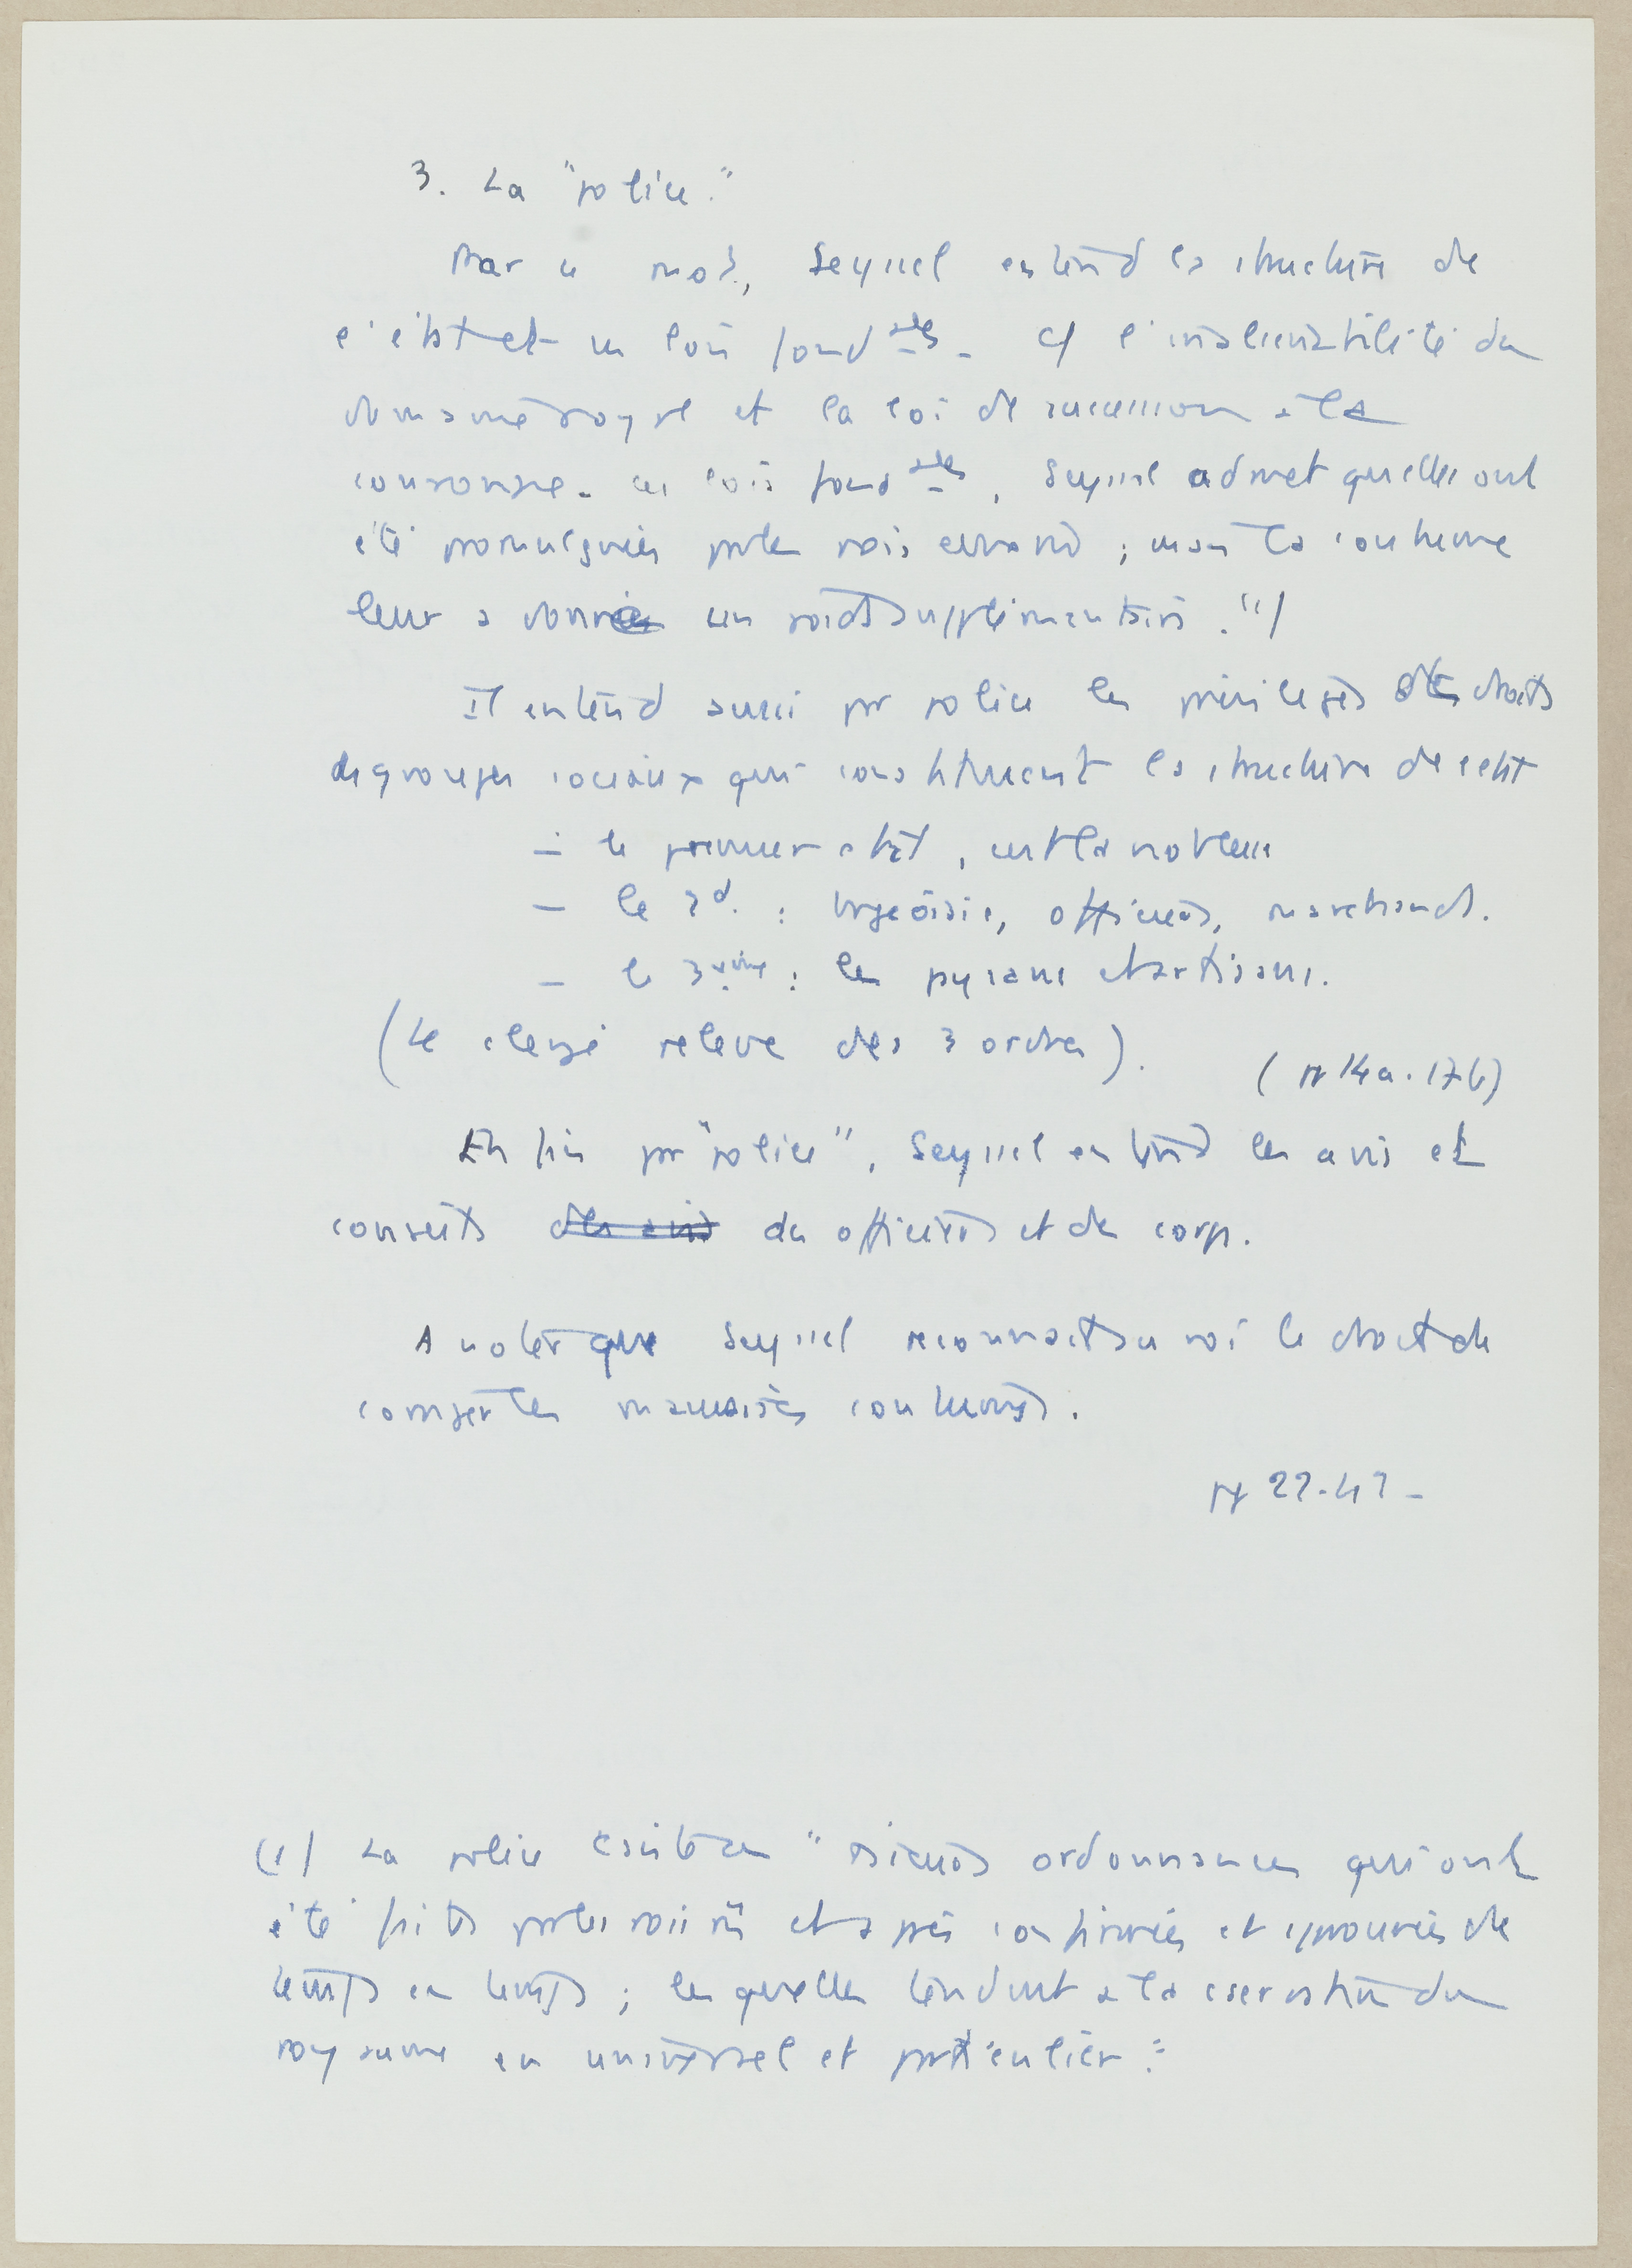 3. La "police."
Par ce mot, Seyssel entend la structure de
l'état et les lois fond ales. Cf l'inaliénabilité du
domaine royal et la loi de succession à la
couronne. Ces lois fond ales, Seyssel admet qu'elles ont
été promulguées par les rois eux-mêmes ; mais la coutume
leur a donné un poids supplémentaire. (1)
Il entend aussi par police les privilèges et les droits
des groupes sociaux qui constituent la structure de l'état
– le premier état, c'est la noblesse
– le 2d. : bourgeoisie, officiers, marchands.
– le 3ème : les paysans et artisans.
(Le clergé relève des 3 ordres).
(pp 14a. 17b)
Enfin par "police", Seyssel entend les avis et
conseils des avis des officiers et des corps.
A noter que Seyssel reconnaît au roi le droit de
corriger les mauvaises coutumes.
pp 22-42 -
(1) La police consiste en "plusieurs ordonnances qui ont
été faites par les rois et après confirmées et approuvées de
temps en temps ; lesquelles tendent à la conservation du
royaume en universel et particulier".